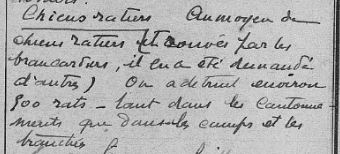 Chiens ratiers Au moyen de
chiens ratiers (et trouvés par les
brancardiers, il en a été demandé
d'autres) On a détruit environ
500 rats - tant dans les Cantonne-
ments que dans les camps et les
tranchées